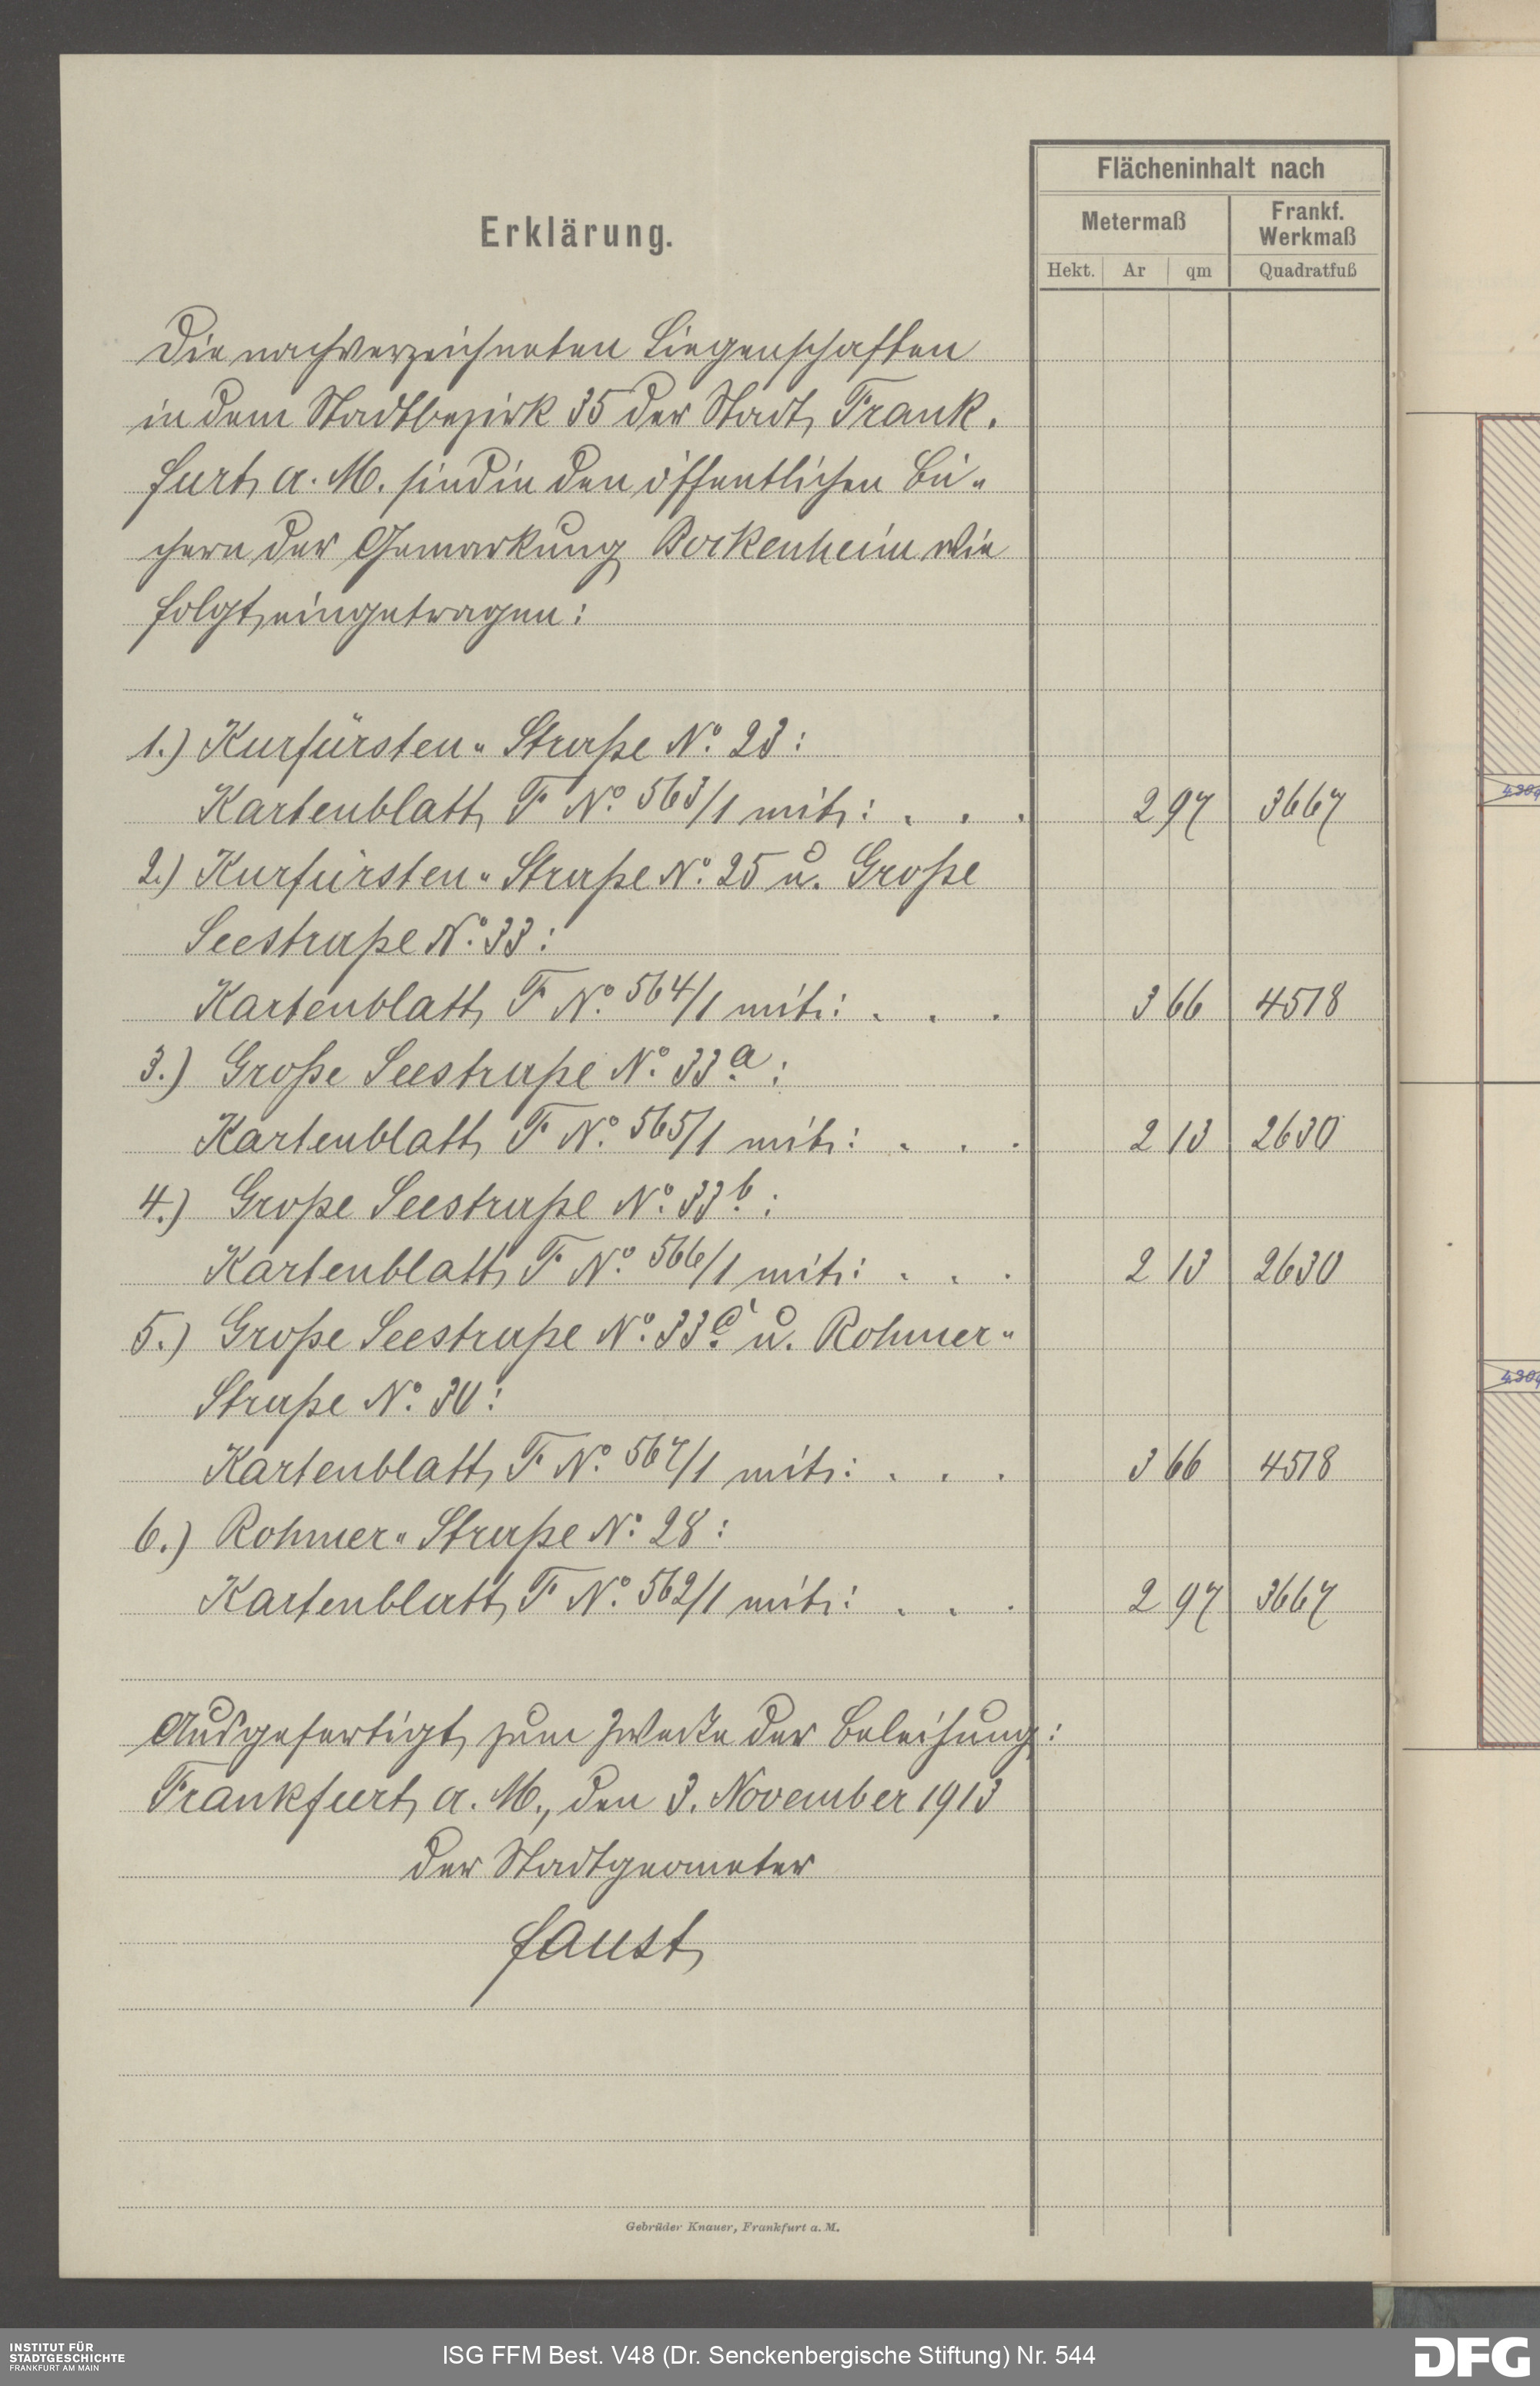 Flächeninhalt nach
Metermaß
Frankf. Werkmaß
Hekt. Ar qm Quadratfuß
Erklärung.
Die nachverzeichneten Liegenschaften
in dem Stadtbezirk 35 der Stadt Frank-
furt a. M. sind in den öffentlichen Bü-
chern der Gemarkung Bockenheim wie
folgt eingetragen:
1.) Kurfürsten-Straße No. 23:
Kartenblatt F No. 563/1 mit: . . . 2 97 3667
2.) Kurfürsten-Straße No. 25 u. Große
Seestraße No. 33:
Kartenblatt F No. 564/1 mit: . . . 3 66 4518
3.) Große Seestraße No. 33a:
Kartenblatt F No. 565/1 mit: . . . 2 13 2630
4.) Große Seestraße No. 33b:
Kartenblatt F No. 566/1 mit: . . . 2 13 2630
5.) Große Seestraße No. 33c u. Rohmer-
Straße No. 30:
Kartenblatt F No. 567/1 mit: . . . 3 66 4518
6.) Rohmer-Straße No. 28:
Kartenblatt F No. 562/1 mit: . . . 2 97 3667
Ausgefertigt zum Zwecke der Beleihung:
Frankfurt a. M., den 3. November 1913
Der Stadtgeometer
Faust
Gebrüder Knauer, Frankfurt a. M.
INSTITUT FÜR
STADTGESCHICHTE
FRANKFURT AM MAIN
ISG FFM Best. V48 (Dr. Senckenbergische Stiftung) Nr. 544
DFG